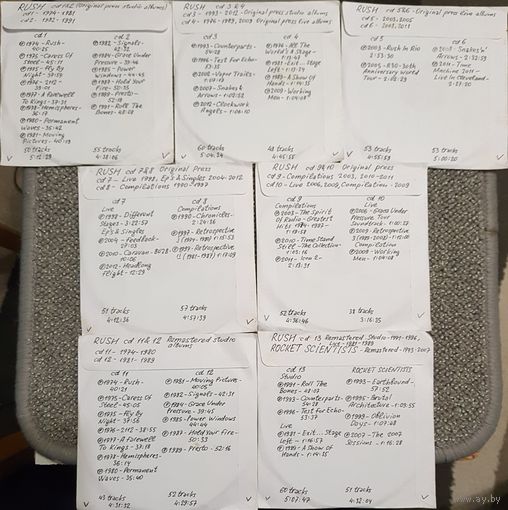 RUSH cd 1&2 (Original press studio albums)
cd 1 - 1974 - 1981
cd 2 - 1982 - 1991
cd 1
1974 - Rush - 40:21
1975 - Caress Of Steel - 45:11
1975 - Fly By Night - 37:59
1976 - 2112 - 39:01
1977 - A Farewell To Kings - 37:31
1978 - Hemispheres - 36:17
1980 - Permanent Waves - 35:42
1981 - Moving Pictures - 40:19
50 tracks
5:12:29
cd 2
1982 - Signals -
1984 - Grace Under Pressure - 39:46
1985 - Power Windows - 44:45
1987 - Hold Your Fire - 50:35
1989 - Presto - 52:18
1991 - Roll The Bones -
55 tracks
4:38:06
RUSH cd 3 & 4
cd 3 - 1993 - 2012 - Original press studio albums
cd 4 - 1976 - 1993, 2009 Original press live albums
cd 3
1993 - Counterparts -
1996 - Test for Echo -
2002 - Vapor Trails -
2007 - Snakes & Arrows - 1:02:52
2012 - Clockwork Angels -
60 tracks
5:04:34
cd 4
1976 - All The World's A Stage -
1981 - Exit... Stage Left -
1989 - A Show Of Hands -
2009 - Working Men -
48 tracks
4:45:55
RUSH cd 5&6 - Original press live albums
cd 5 - 2003, 2005
cd 6 - 2008, 2011
cd 5
2003 - Rush In Rio
2005 - R30 - 30th Anniversary World Tour -
53 tracks
4:55:59
cd 6
2008 - Snakes 'n' Arrows -
2011 - Time Machine 2011 - Live In Cleveland
53 tracks
5:00:20
RUSH cd 7&8 Original Press
cd 7 - Live 1998, Ep's & Singles 2004 - 2012
cd 8 - Compilations 1990 - 1997
cd 7
Live
1998 - Different Stages - 3:22:57
Ep's & Singles
2004 - Feedback - 27:03
2010 - Caravan - BU2B - 10:06
2012 - Headlong Flight - 12:29
51 tracks
4:12:36
cd 8
Compilations
1990 - Chronicles -
1997 - Retrospective I (1974 - 1980)
1997 - Retrospective II (1981 - 1987)
57 tracks
4:57:39
RUSH cd 9&10 Original press
cd 9 - Compilations 2003, 2010 - 2011
cd 10 - Live 2006, 2009, Compilation - 2009
cd 9
Compilations
2003 - The Spirit Of Radio - Greatest Hits 1974 - 1987 -
2010 - Time Stand Still - The Collection -
2011 - Icon 2 -
52 tracks
4:36:46
cd 10
Live
2006 - Grace Under Pressure Tour Soundtrack -
2009 - Retrospective 3 (1989 - 2008) -
Compilation
2009 - Working Men -
38 tracks
3:16:35
RUSH cd 11 & 12 Remastered studio albums
cd 11 - 1974 - 1980
cd 12 - 1981 - 1989
cd 11
1974 - Rush -
1975 - Caress Of Steel -
1975 - Fly By Night - 37:56
1976 - 2112 - 38:55
1977 - A Farewell To Kings -
1978 - Hemispheres - 36:14
1980 - Permanent Waves - 35:40
43 tracks
4:31:32
cd 12
1981 - Moving Pictures -
1982 - Signals -
1984 - Grace Under Pressure - 39:45
1985 - Power Windows
1987 - Hold Your Fire - 50:33
1989 - Presto - 52:16
52 tracks
4:29:57
RUSH cd 13 Remastered - Studio - 1991 - 1996, Live - 1981 - 1989
ROCKET SCIENTISTS - Remastered - 1993 - 2007
cd 13
Studio
1991 - Roll The Bones -
1993 - Counterparts - 54:28
1996 - Test for Echo - 53:37
Live
1981 - Exit... Stage Left -
1989 - A Show Of Hands -
60 tracks
5:07:47
ROCKET SCIENTISTS
1993 - Earthbound - 57:52
1995 - Brutal Architecture -
1999 - Oblivion Days -
2007 - The 2007 Sessions -
51 tracks
4:12:04
ay.by